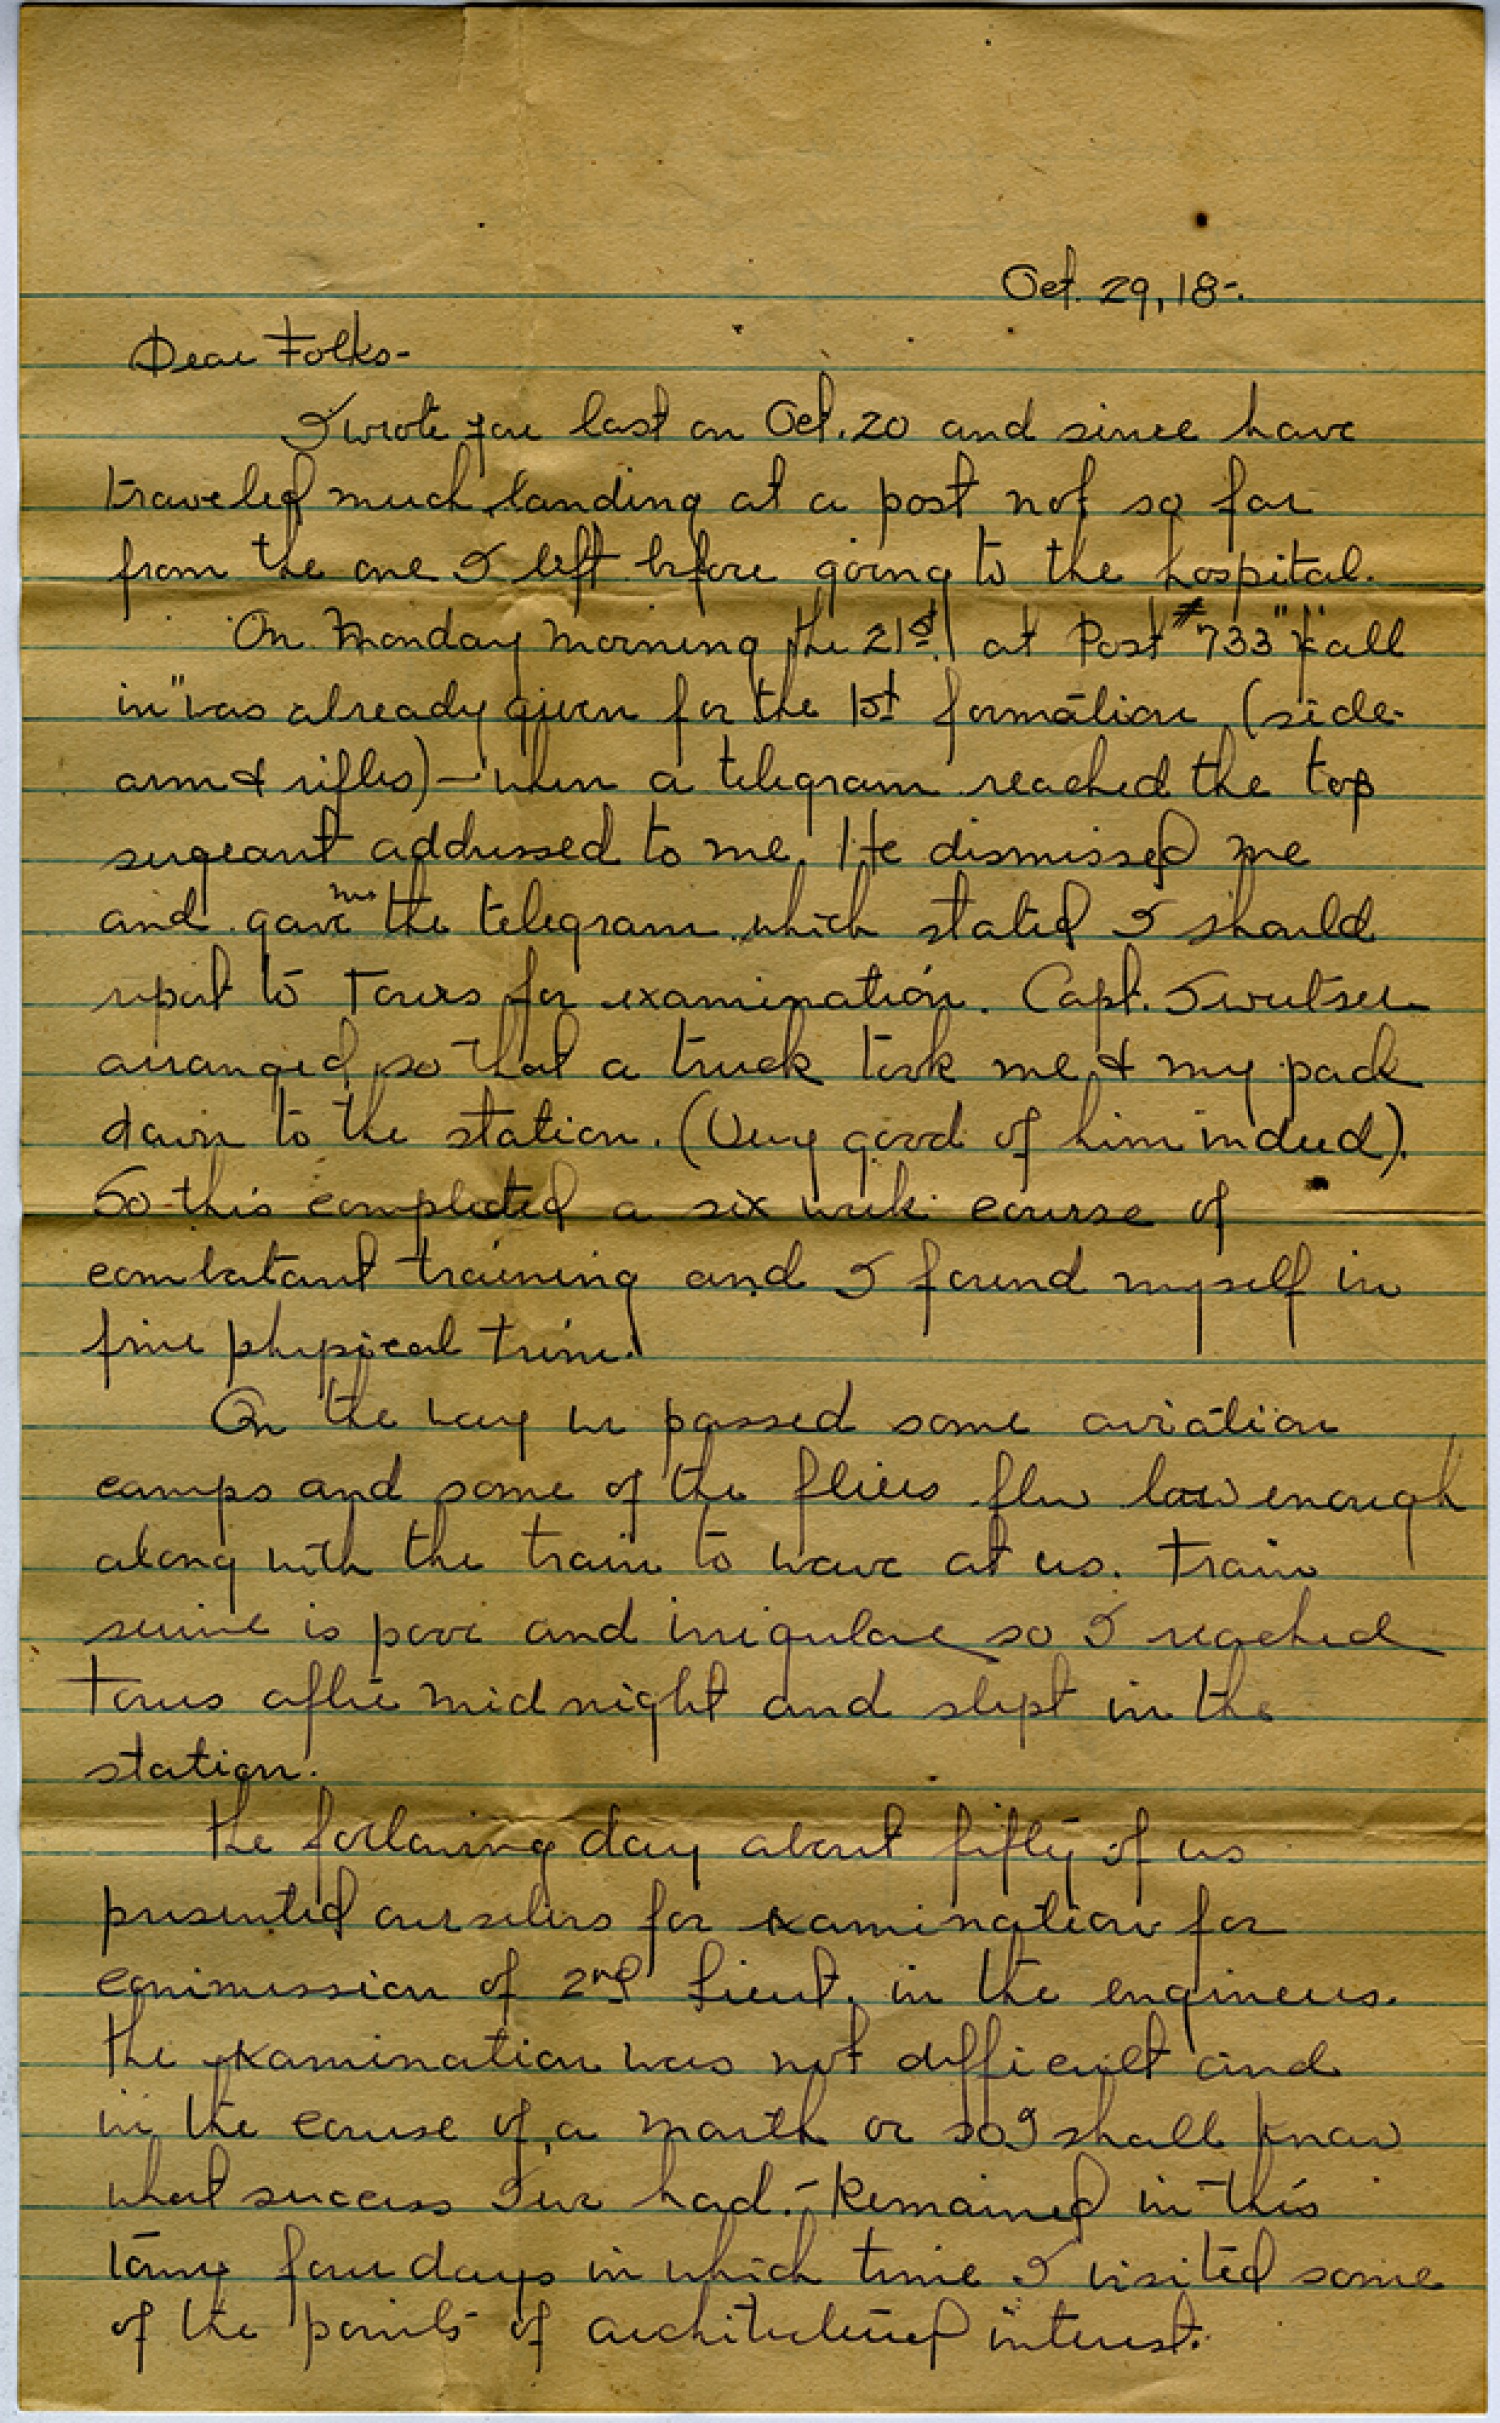 Oct. 29, 18-.
Dear Folks-
I wrote you last on Oct. 20 and since have
traveled much, landing at a post not so far
from the one I left before going to the hospital.
On Monday morning the 21st, at Post #733 "Fall
in" was already given for the 1st formation (side-
arm & rifles) - when a telegram reached the top
sergeant addressed to me. He dismissed me
and gave me the telegram which stated I should
report to Tours for examination. Capt.
arranged so that a truck took me & my pack
down to the station. (Very good of him indeed).
So this completed a six week course of
combatant training and I found myself in
fine physical trim.
On the way we passed some aviation
camps and some of the fliers flew low enough
along with the train to wave at us. Train
service is poor and irregular so I reached
Tours after midnight and slept in the
station.
The following day about fifty of us
presented ourselves for examination for
commission of 2nd Lieut. in the engineers.
The examination was not difficult and
in the course of a month or so I shall know
what success I've had. - Remained in this
town four days in which time I visited some
of the points of architectural interest.